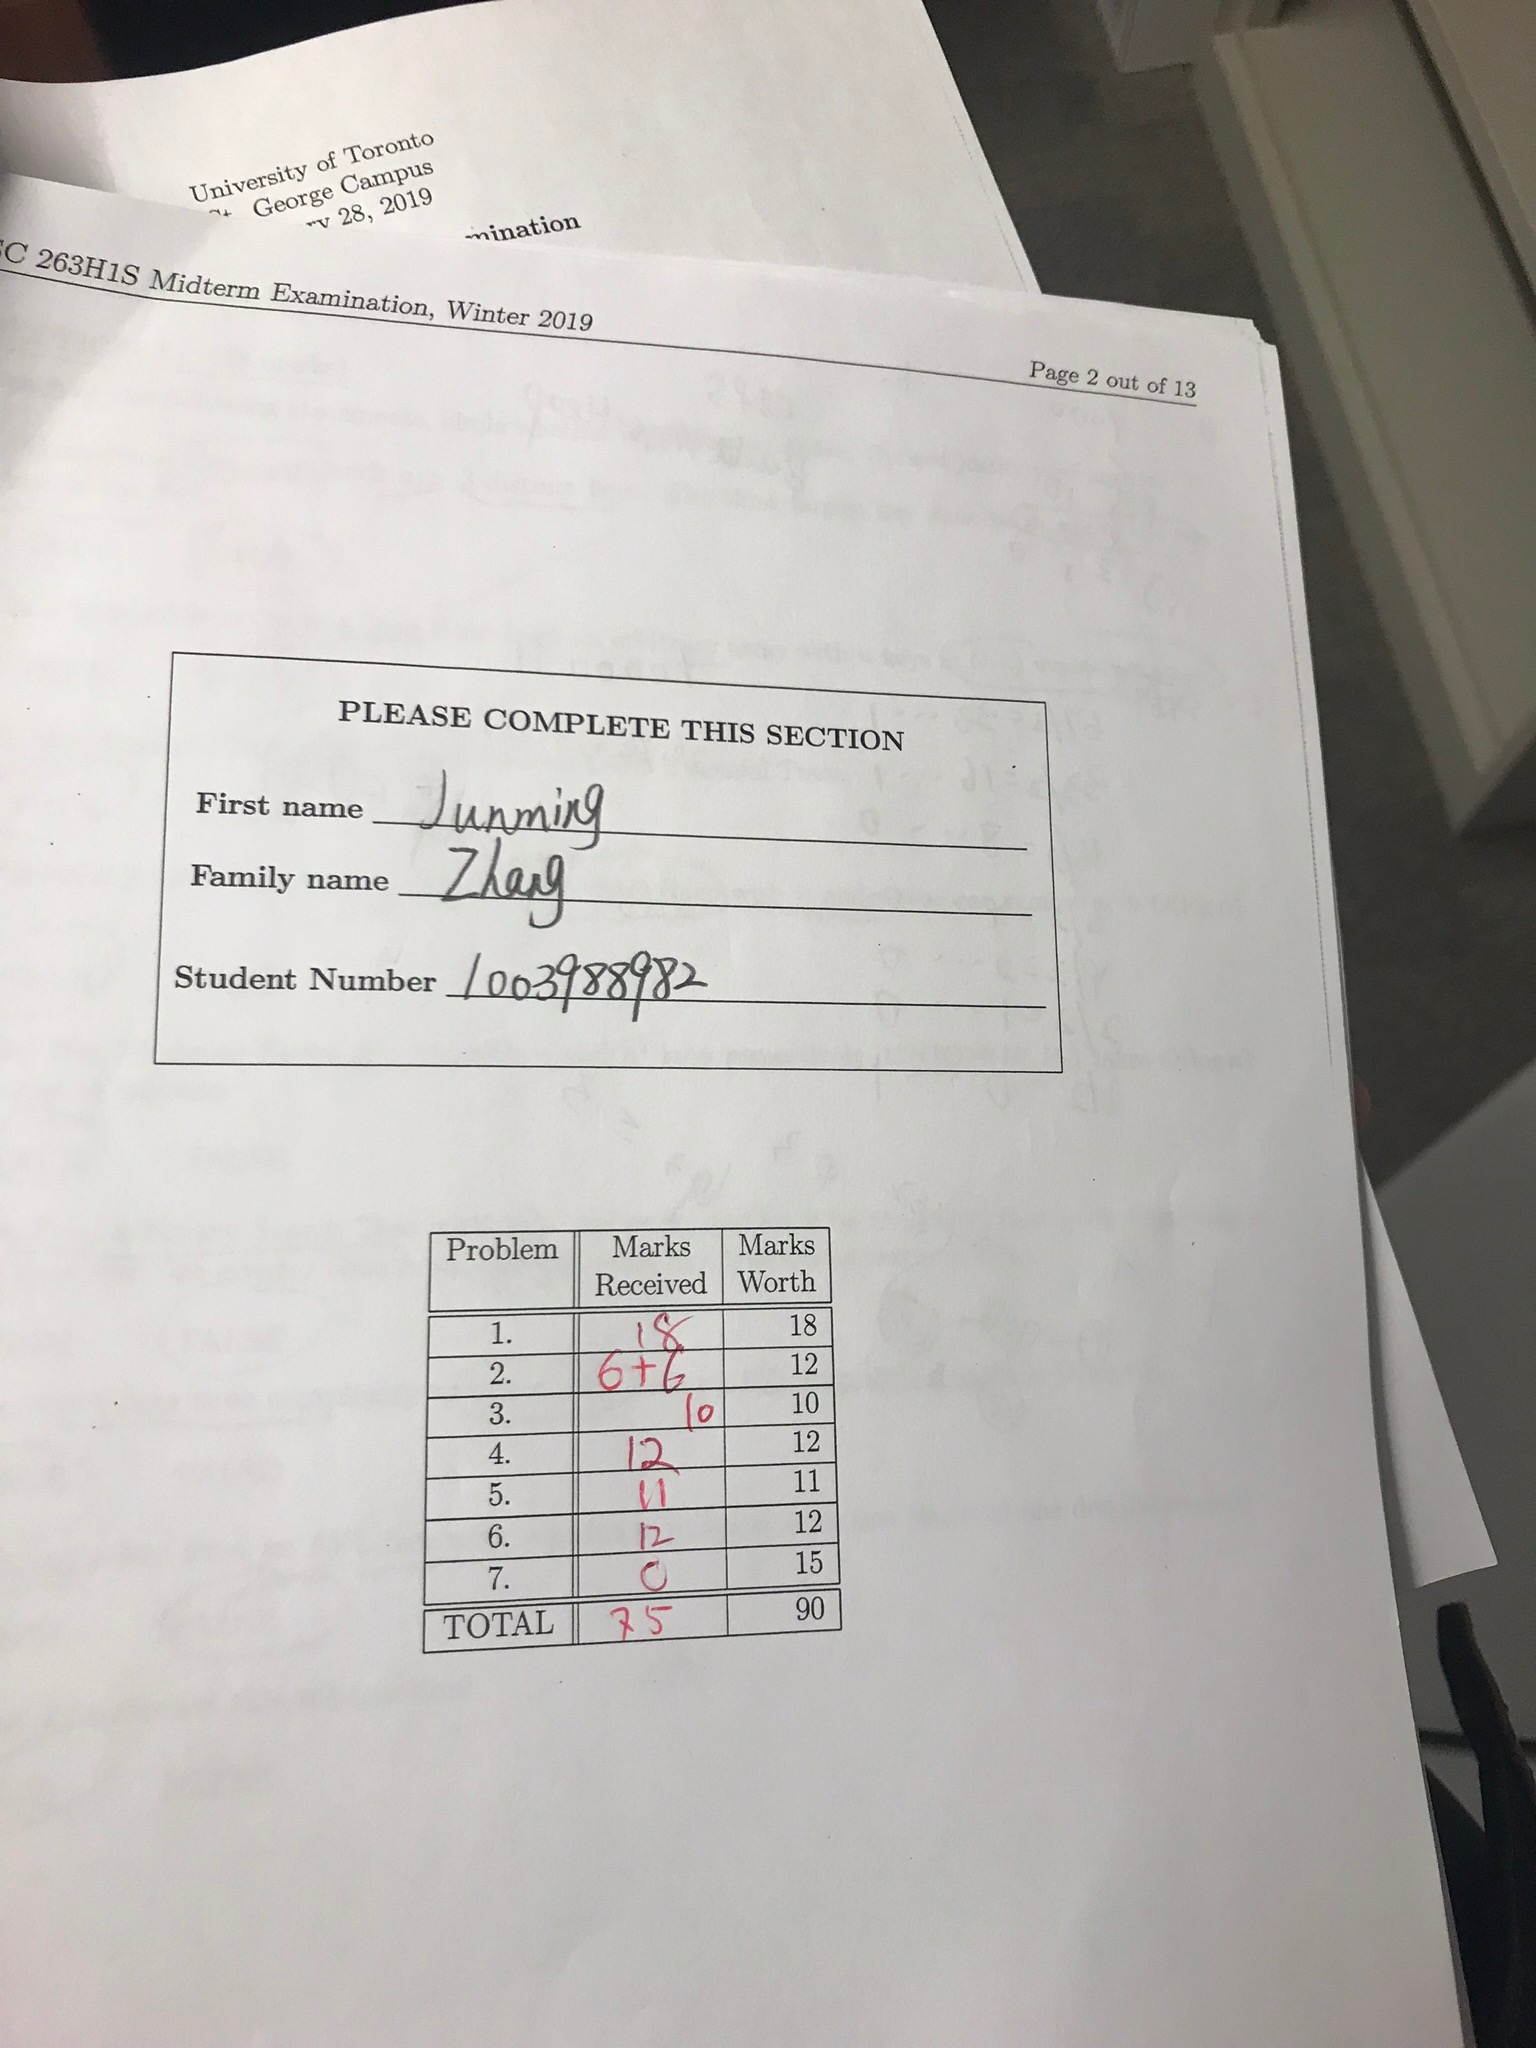 University of Toronto
George Campus
28, 2019
263H1S Midterm Examination, Winter 2019
Page 2 out of 13
PLEASE COMPLETE THIS SECTION
First name Junming
Family name Zhang
Student Number 1003988982
Problem Marks Received Marks Worth
1. 18 18
2. 6+6 12
3. 10 10
4. 12 12
5. 11 11
6. 12 12
7. 0 15
TOTAL 75 90